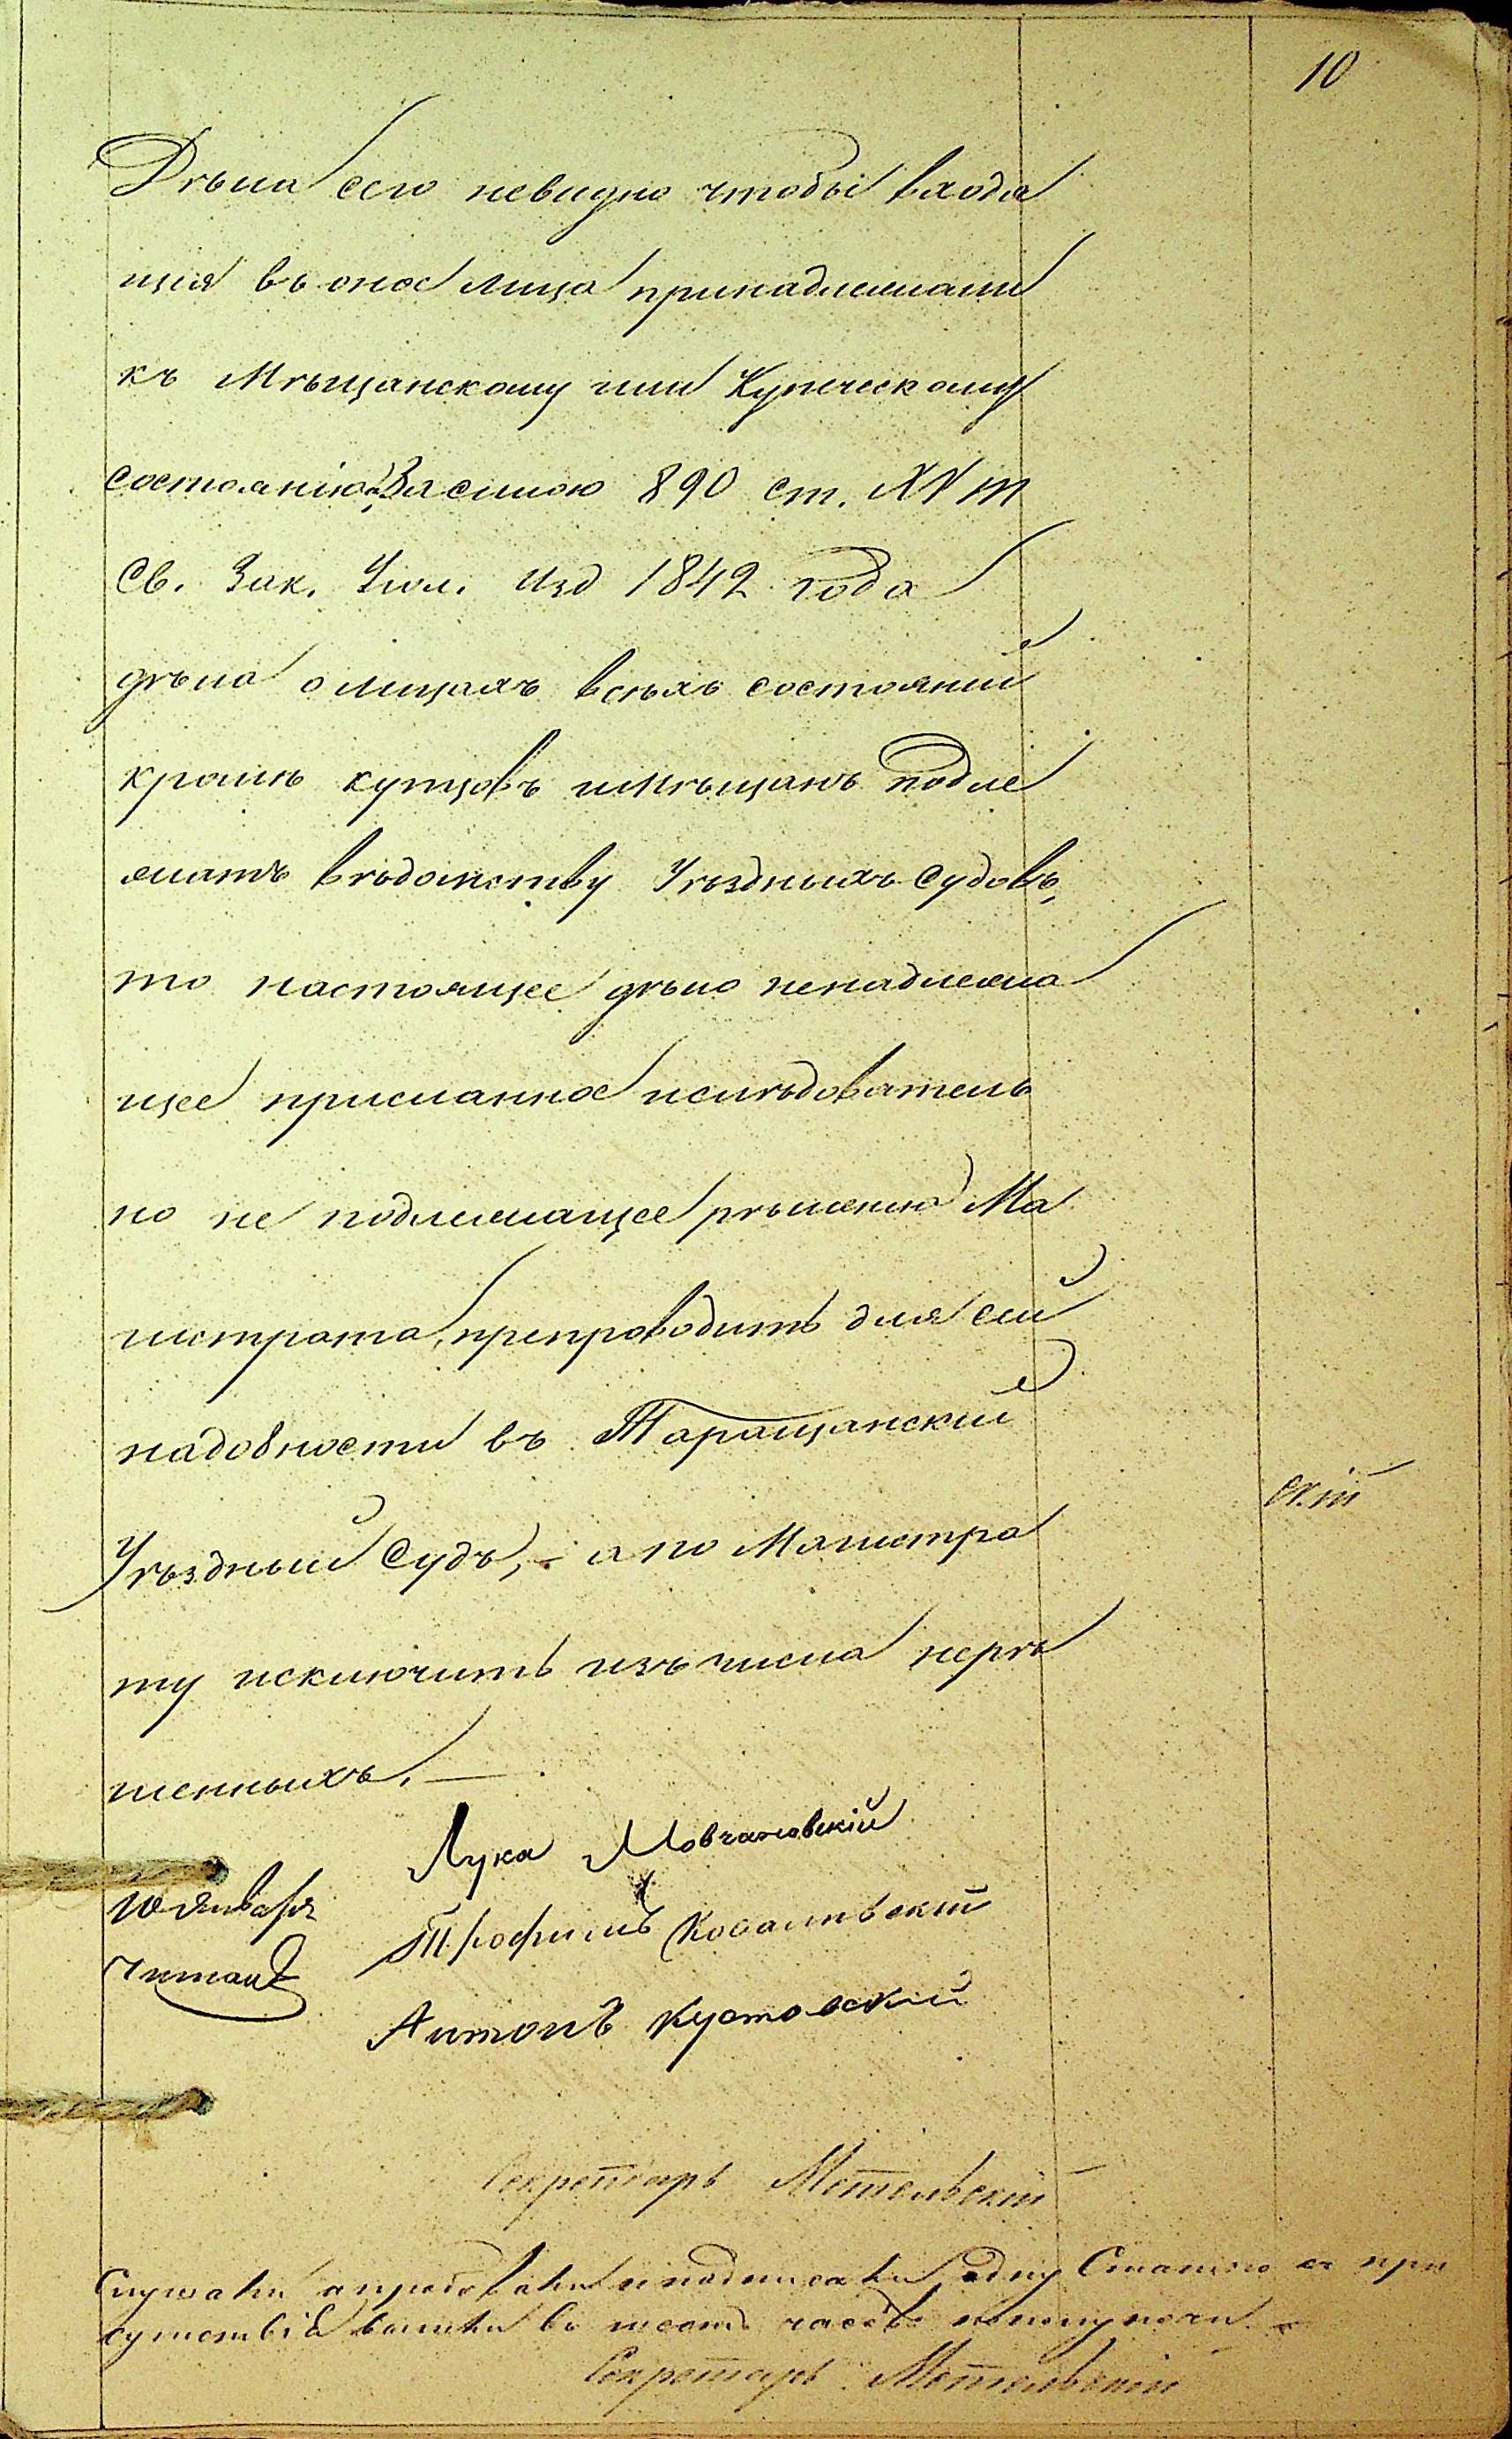 10
Дѣла сего невидно чтобы входя
щія въ оное лица принадлежали
къ Мѣщанскому или Купеческому
состоянію, За силою 890 ст. XV т
Св. Зак. Угол. Изд 1842 года
дѣла о лицахъ всѣхъ состояний
кромѣ купцовъ и Мѣщанъ подле
жатъ вѣдомству Уѣздныхъ Судовъ,
то настоящее дѣло ненадлежа
щее присланное и слѣдователь
но не подлежащее рѣшенію Ма
гистрата, препроводить для сей
надобности въ Таращанский
Уѣздный Судъ, – а по Магистра
ский
ту исключить изъ числа нерѣ
шенныхъ. —
Лука Мовчановскій
10 Января
Трофимъ Ковалевскій
Читалъ
Антонъ Кустовский
Секретарь Метельскій
Слушали опробовали и подписали одну Статью а при
сутствія вышли въ шесть часовъ пополуночи. –
Секретарь Метельскій